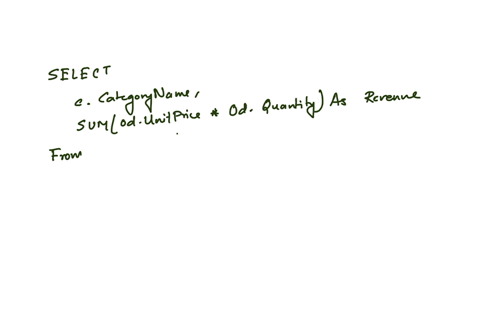 SELECT
c. CategoryName,
SUM(Od.UnitPrice * Od. Quantity) As Revenue
From